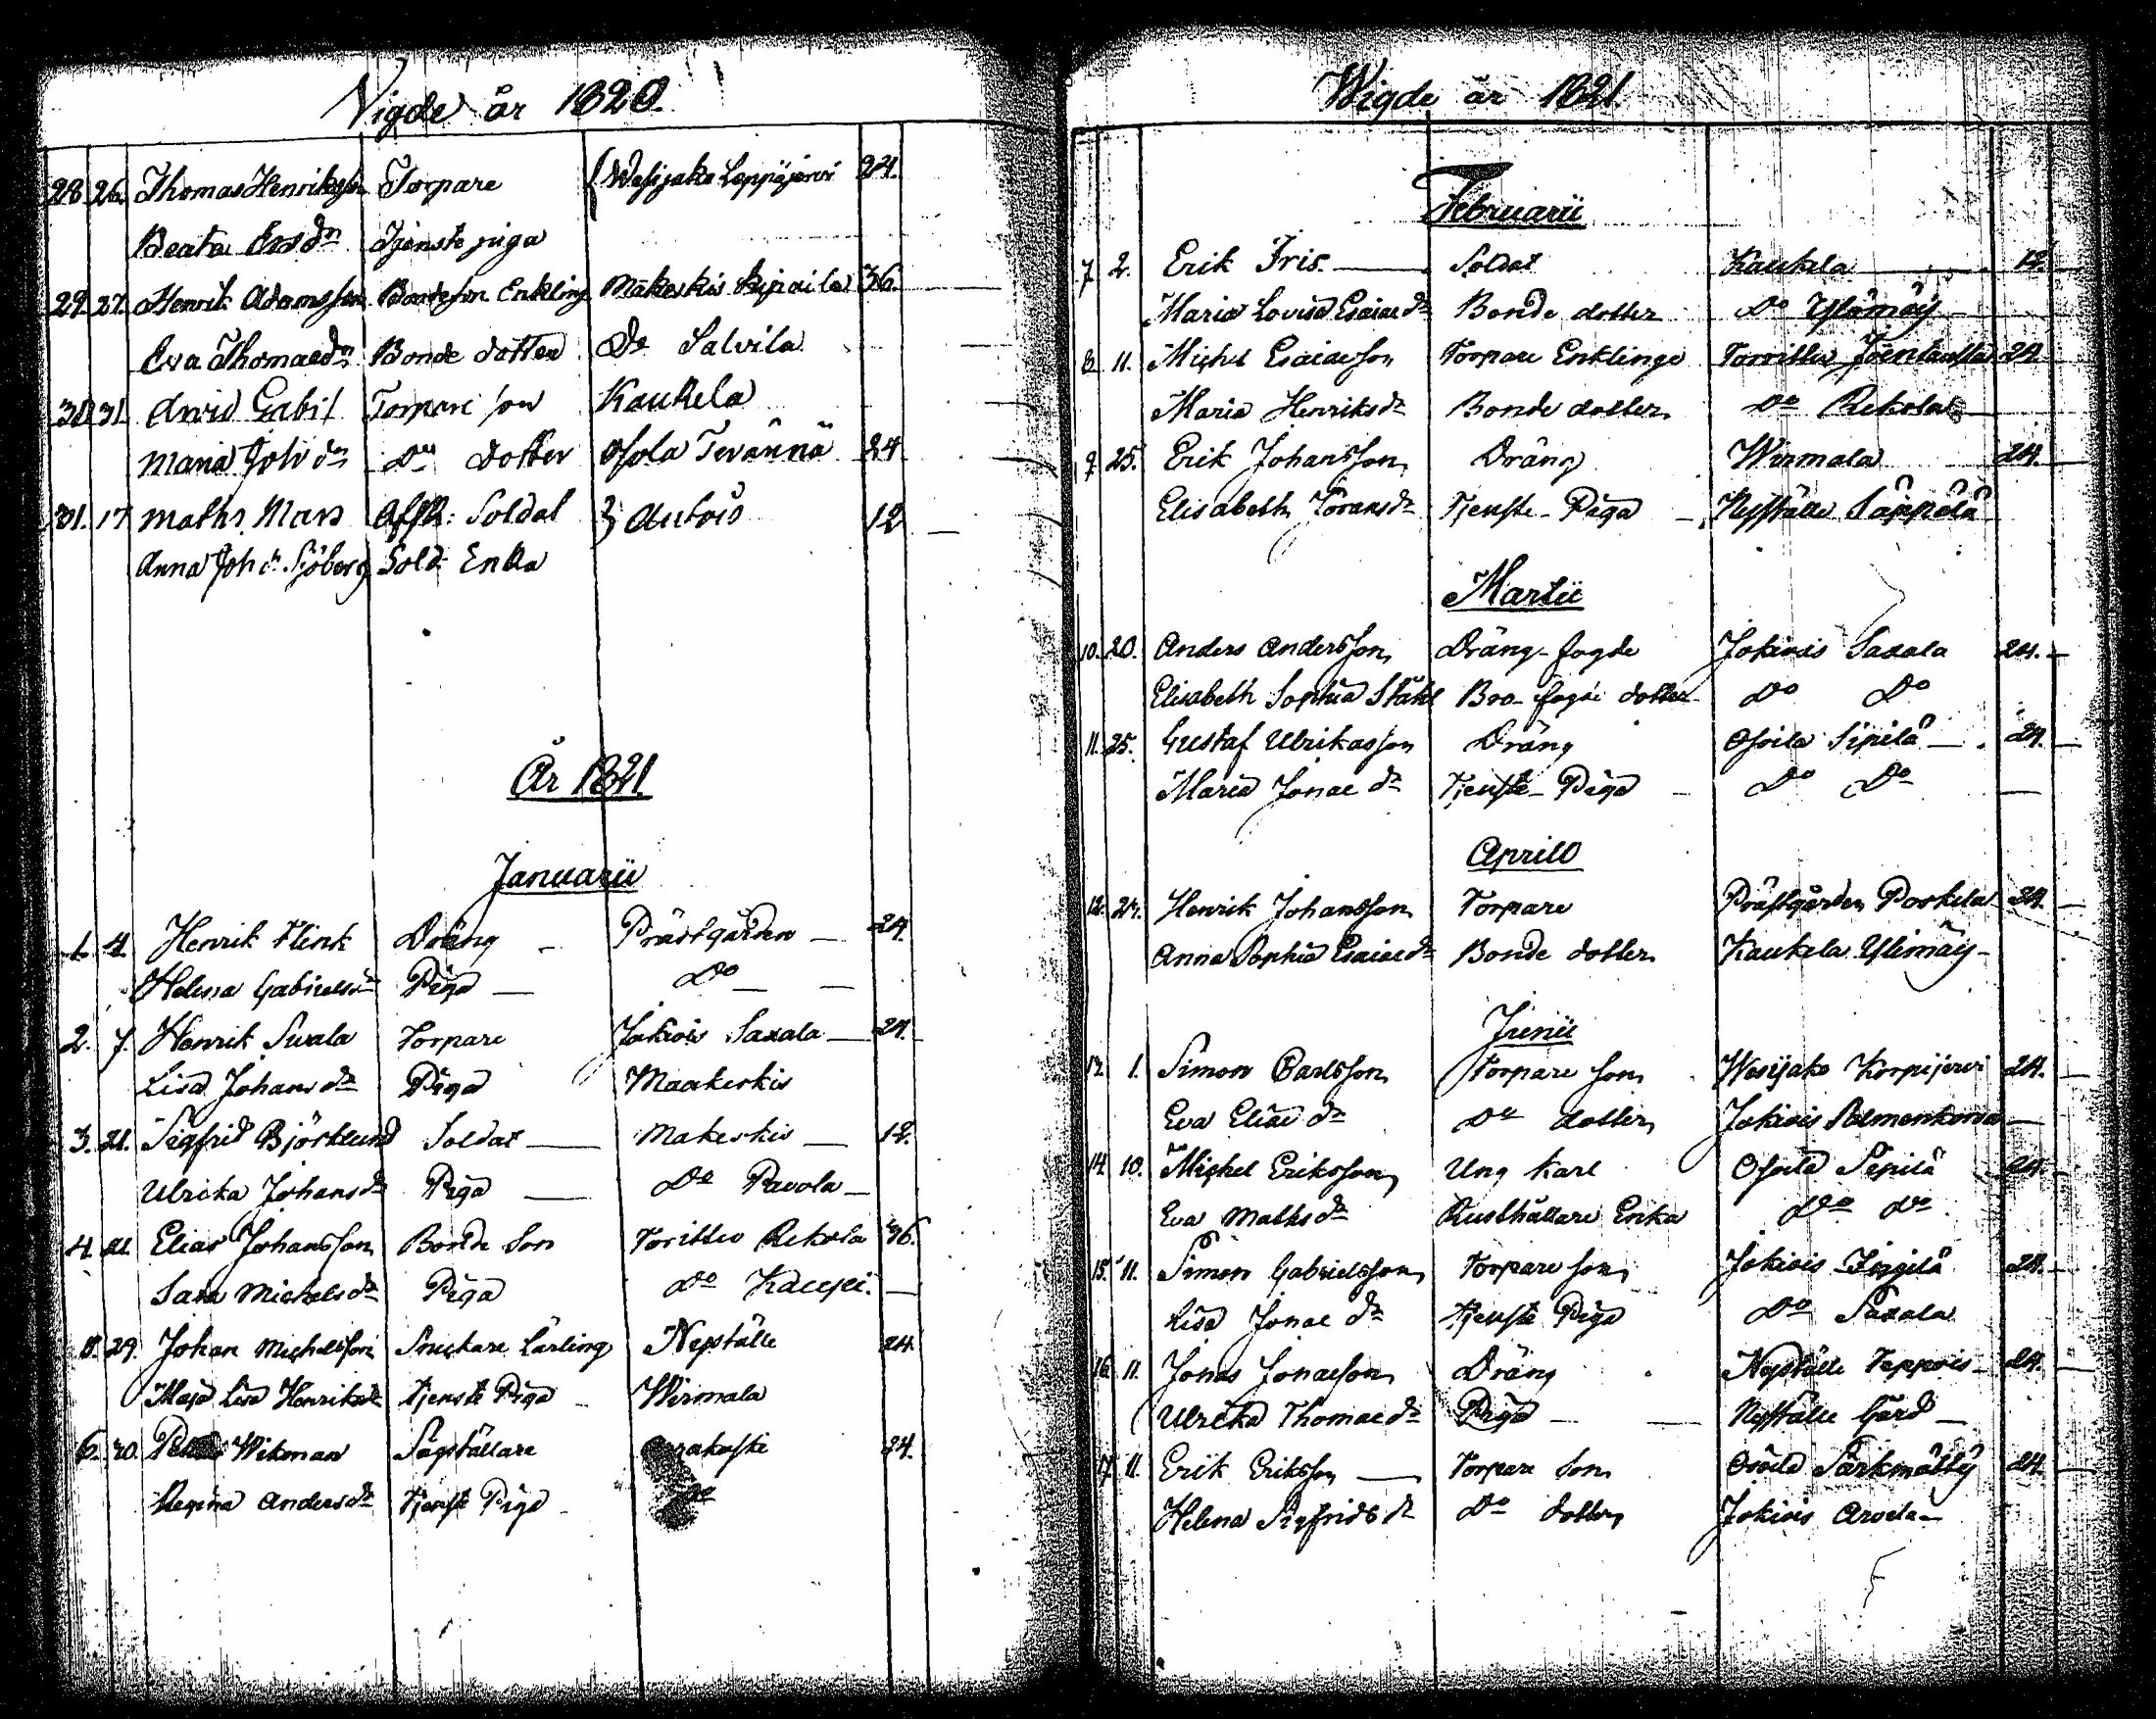 Vigde år 1820.
28 26. Thomas Henriksson Torpare Wesijako Leppäjärvi 24.
Beata Ersdr Tjenste piga
29. 27. Henrik Adamsson Bondeson Enkling Mäkeskis 36.
Eva Thomaedr Bonde dotter Do Salvila
30 31. Arvid Gabri Torpare son Kaukela
Maria Johdr Do dotter Osola 24
31. 17 Maths Mars Afsk. Soldat Autois 12
Anna Johdr Sjöberg Sold. Enka
År 1821.
Januarii
1. 4. Henrik Flink Dräng Prästgården 24.
Helena Gabrielsdr Piga Do
2. 7. Henrik Swala Torpare Jokiois Saxala 24.
Lisa Johansdr Piga Maakeskis
3. 21. Sigfrid Björklund Soldat Makeskis 12.
Ulrika Johansdr Piga Do Pavola
4. 21. Elias Johansson Bonde Son Torittu Rekola 36.
Sara Michelsdr Piga Do Kaupi.
5. 29. Johan Michelsson Snickare Lärling Nepställe 24
Maja Lisa Henriksdr Tjenste Piga Wirmala
6. 30. Wikman Sågställare 24.
Regina Andersdr Tjenste Piga Do
Wigde år 1821.
Februarii
7 2. Erik Fris. Soldat Kaukela 12.
Maria Lovisa Esaiaedr Bonde dotter Do Ylämäy
8 11. Michel Esaiaeson Torpare Enklinge Torrittu 24.
Maria Henriksdr Bonde dotter Do Rekola
9 25. Erik Johansson Dräng Wirmala 24.
Elisabeth Göransdr Tjenste Piga Nepställe Säppälä
Martii
10. 20. Anders Andersson Dräng-fogde Jokiois Saxala 24.
Elisabeth Sophia Ståhl Bro-fogde dotter Do Do
11. 25. Gustaf Ulrikasson Dräng Osoila Sipilä 24.
Maria Jonae dr Tjenste Piga Do Do
Aprill
12. 24. Henrik Johansson Torpare Prästgården Porkela 24.
Anna Sophia Esaiaedr Bonde dotter Kaukela Ylimäy
Junii
13. 1. Simon Carlsson Torpare son Wesijako Korpijervi 24.
Eva Eliae dr Do dotter Jokiois Salmenkona
14. 10. Michel Eriksson Ung Karl Osoila Sipilä 24.
Eva Mathsdr Rusthållare Enka Do Do
15. 11. Simon Gabrielsson Torpare son Jokiois 24.
Lisa Jonae dr Tjenste Piga Do Saxala
16 11. Jonas Jonaeson Dräng Nepställe Teppois 24.
Ulrika Thomae dr Piga Nepställe Gård
17 11. Erik Eriksson Torpare Son Osoila Särkmätty 24.
Helena Sigfrids dr Do dotter Jokiois Arvela